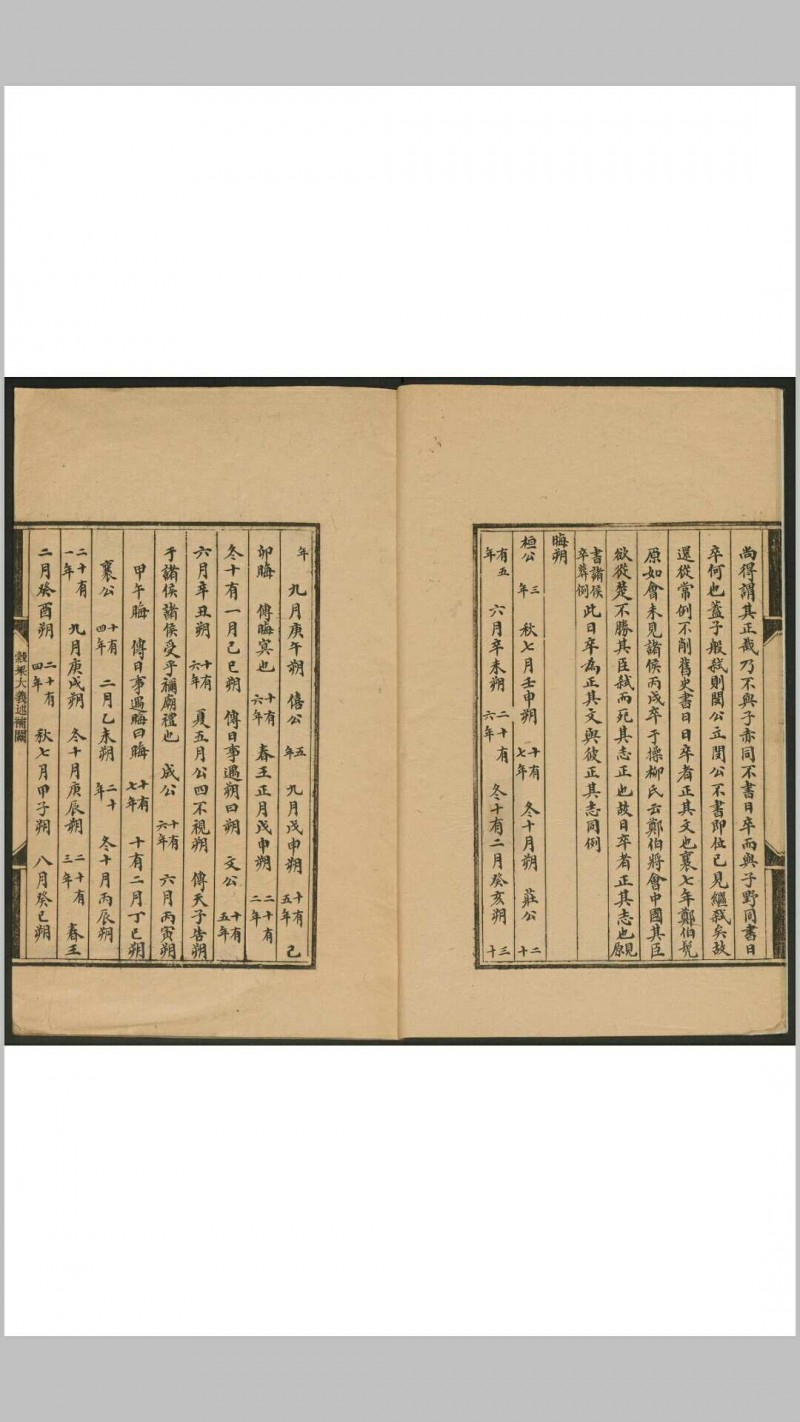 尚得謂其正哉乃不與子赤同不書日卒而與子野同書日
卒何也蓋子般弒則閔公立閔公不書即位已見繼弒矣故
還從常例不削舊史書日日卒者正其文也襄七年鄭伯髡
原如會未見諸侯丙戌卒于操柳氏云鄭伯將會中國其臣
欲從楚不勝其臣弒而死其志正也故日卒者正其志也願見
書諸侯卒葬例此日卒為正其文與彼正其志同例
晦朔
桓公三年 秋七月壬申朔 十有七年 冬十月朔 莊公二十
有五年 六月辛未朔 二十有六年 冬十有二月癸亥朔 三十
年 九月庚午朔 僖公五年 九月戊申朔 十有五年 己
卯晦 傳晦冥也 十有六年 春王正月戊申朔 二十有二年
冬十有一月己巳朔 傳日事遇朔曰朔 文公十有五年
六月辛丑朔 十有六年 夏五月公四不視朔 傳天子告朔
于諸侯諸侯受乎禰廟禮也 成公十有六年 六月丙寅朔
甲午晦 傳日事遇晦曰晦 十有七年 十有二月丁巳朔
襄公十有四年 二月乙未朔 二十年 冬十月丙辰朔
二十有一年 九月庚戌朔 冬十月庚辰朔 二十有三年 春王
二月癸酉朔 二十有四年 秋七月甲子朔 八月癸巳朔
穀梁大義述補闕